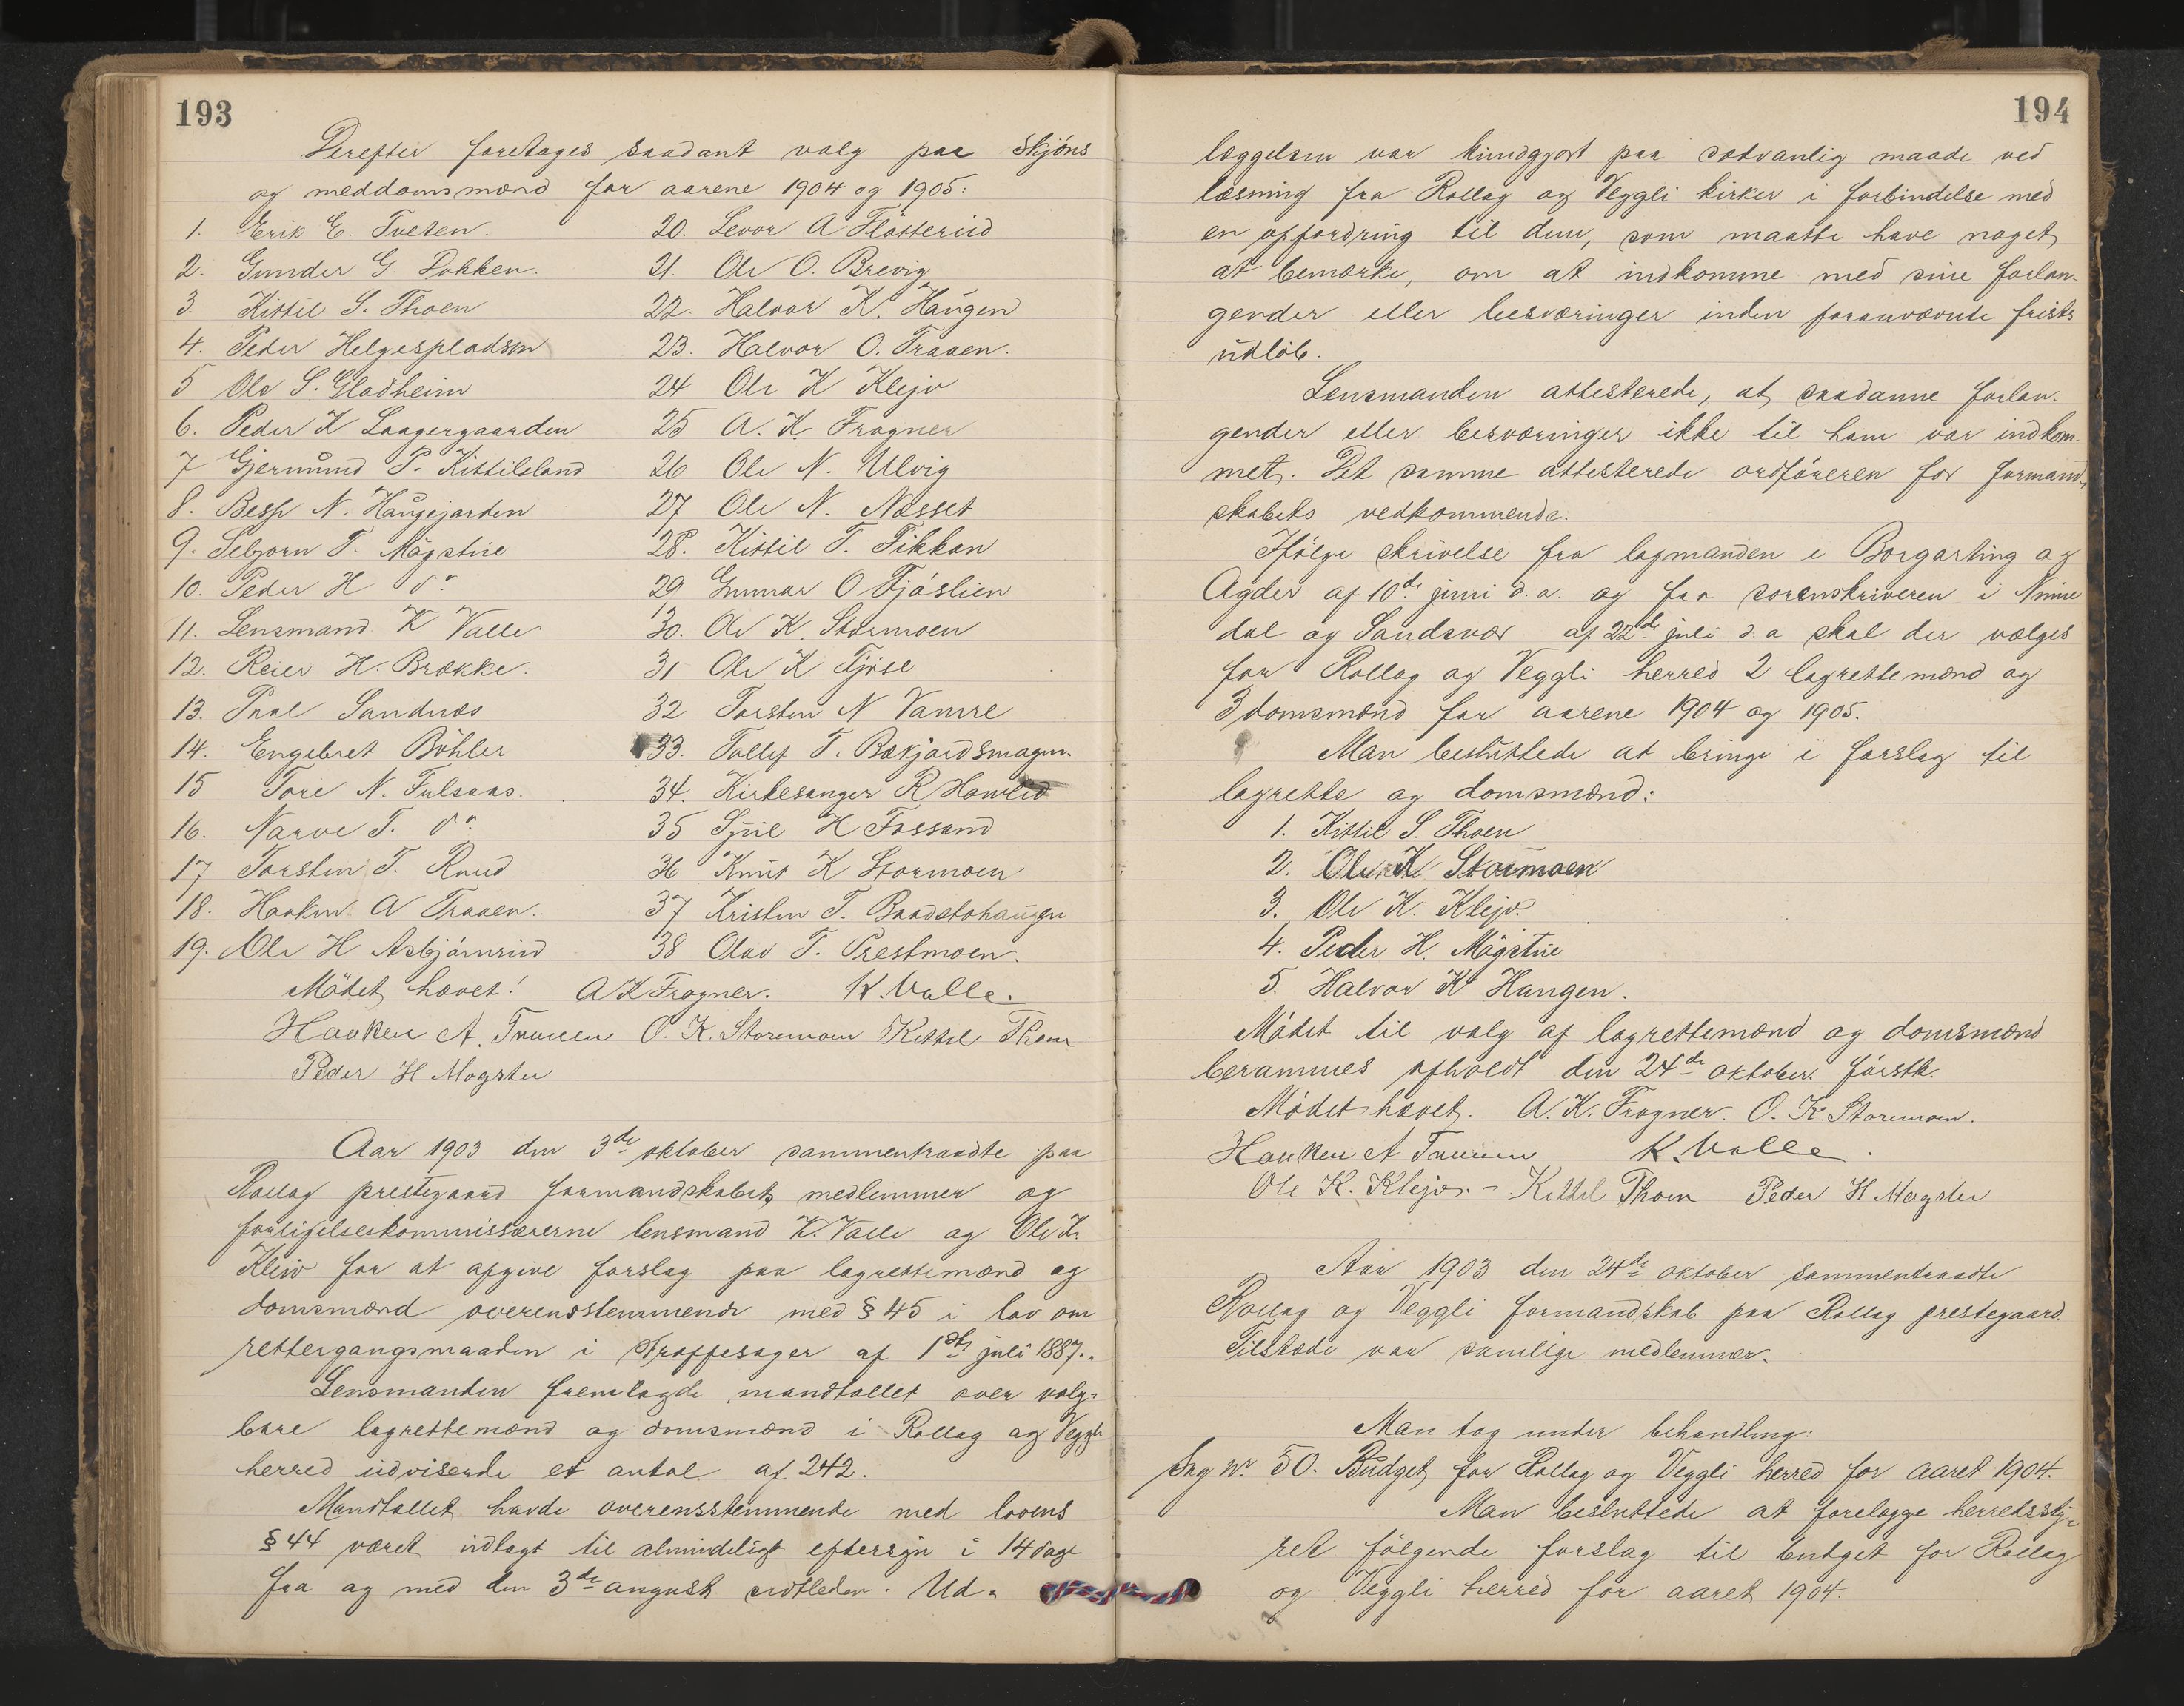 193
Derefter foretages saadant valg paa skjöns
og meddomsmænd for aarene 1904 og 1905:
1. Erik E. Tveten.
2. Gunder G. Dokken.
3. Kittil S. Thoen
4. Peder Helgespladsen
5 Ole S. Gladheim
6. Peder K Laagergaarden
7 Gjermund P. Kittilsland
8. Besse N. Haugejorden
9. Sebjørn T. Mågstue
10. Peder H do
11. Lensmand K Valle
12. Reier H. Brække.
13. Paal Sandnæs
14. Engebret Böhler
15 Tore N. Fulsaas.
16. Narve T. do
17 Torsten T. Ruud
18. Haaken A Traaen.
19. Ole H Asbjörnrud
20. Levor A Flåtterud
21. Ole O. Brevig
22. Halvor K. Haugen
23. Halvor O. Traaen.
24 Ole K Klejv
25 A. K Frogner
26 Ole N. Ulvig
27 Ole N. Næsset
28. Kittil T. Fikkan
29 Gunnar O Fjöslien
30. Ole K. Stormoen
31 Ole K Fjöse
32 Torsten N Vamre
33. Tollef T. Bækjordsmagen.
34. Kirkesanger R Hamled
35 Sjul H Fossand
36 Knut K Stormoen
37 Kristen T. Baadstohaugen
38 Olav T. Prestmoen.
Mödet hævet! A K Frogner. K. Valle.
Haaken A. Traaen O. K. Stormoen Kittil Thoen
Peder H Mogstu
Aar 1903 den 3de oktober sammentraadte paa
Rollag prestegaard formandskabets medlemmer og
forligelseskommissærerne lensmand K. Valle og Ole K.
Kleiv for at afgive forslag paa lagrettemænd og
domsmænd overensstemmende med § 45 i lov om
rettergangsmaaden i straffesager af 1ste juli 1887.
Lensmanden fremlagde mandtallet over valg-
bare lagrettemænd og domsmænd i Rollag og Veggli
herred udvisende et antal af 242.
Mandtallet havde overensstemmende med lovens
§ 44 været udlagt til almindeligt eftersyn i 14 dage
fra og med den 3de august sidstleden. Ud-
194
læggelsen var kundgjort paa sædvanlig maade ved
læsning fra Rollag og Veggli kirker i forbindelse med
en opfordring til dem, som maatte have noget
at bemærke, om at indkomme med sine forlan-
gender eller besværinger inden forannævnte frists
udlöb.
Lensmanden attesterede, at saadanne forlan-
gender eller besværinger ikke til ham var indkom-
met. Det samme attesterede ordföreren for formand-
skabets vedkommende.
Ifölge skrivelse fra lagmanden i Borgarting og
Agder af 10de juni d.a. og fra sorenskriveren i Nume
dal og Sandsvær af 22de juli d.a skal der vælges
for Rollag og Veggli herred 2 lagrettemænd og
3 domsmænd for aarene 1904 og 1905.
Man besluttede at bringe i forslag til
lagrette og domsmænd:
1. Kittil S. Thoen
2. Ole K Stormoen
3. Ole K. Klejv.
4. Peder H. Mågstue
5. Halvor K Haugen.
Mödet til valg af lagrettemænd og domsmænd
berammes afholdt den 24de oktober förstk.
Mödet hævet. A. K. Frogner. O. K. Stormoen.
Haaken A Traaen K. Valle.
Ole K. Klejv. - Kittil Thoen Peder H Mogstu
Aar 1903 den 24de oktober sammentraadte
Rollag og Veggli formandskab paa Rollag prestegaard.
Tilstede var samtlige medlemmer.
Man tog under behandling:
Sag nr. 50. Budget for Rollag og Veggli herred for aaret 1904.
Man besluttede at forelægge herredssty-
ret fölgende forslag til budget for Rollag
og Veggli herred for aaret 1904.